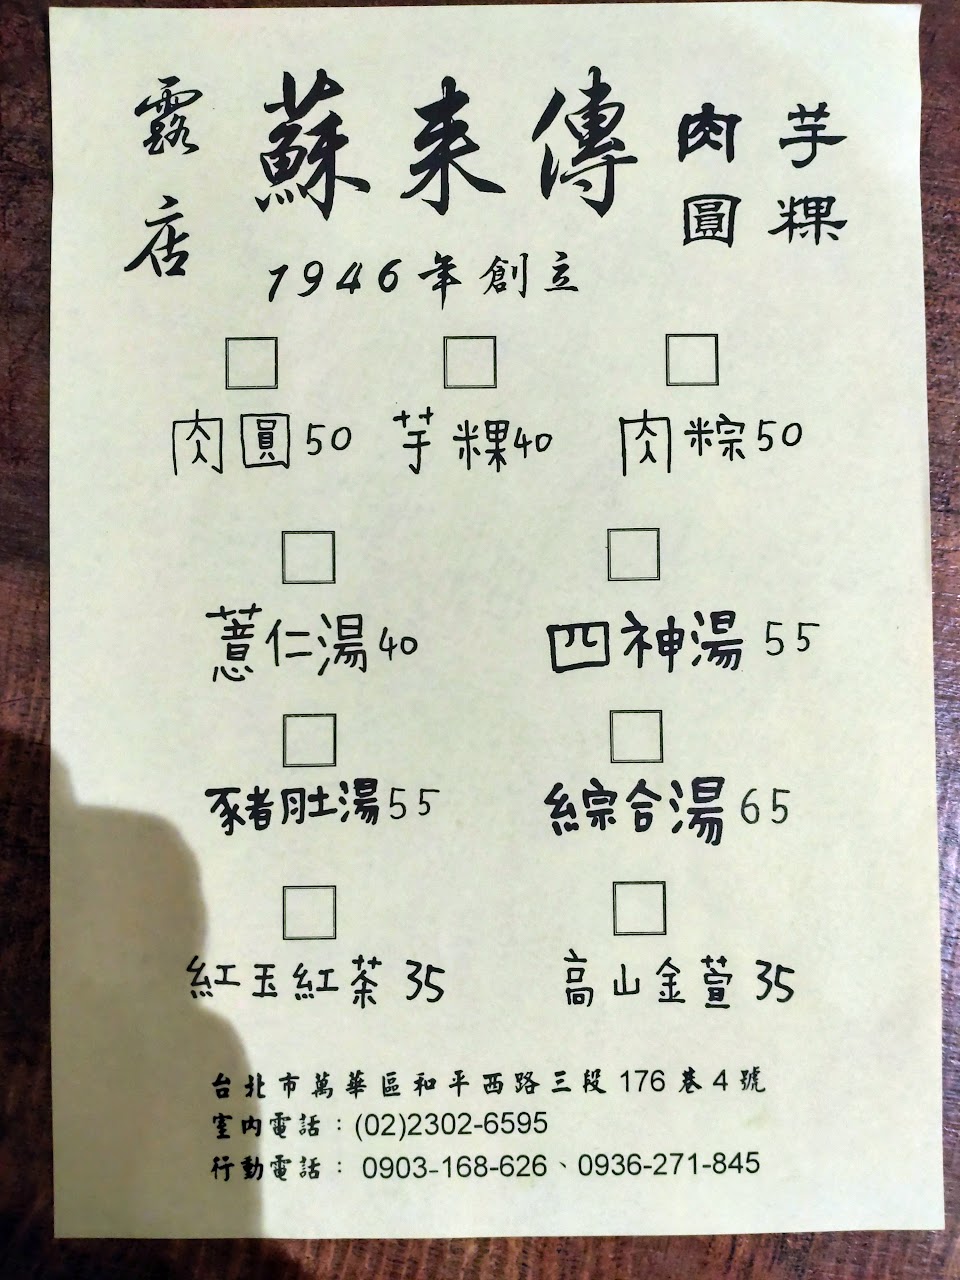 露店
蘇来傳
肉圓
芋粿
1946年創立
肉圓50 芋粿40 肉粽50
薏仁湯40 四神湯55
豬肚湯55 綜合湯65
紅玉紅茶 35 高山金萱 35
台北市萬華區和平西路三段176巷4號
室內電話：(02)2302-6595
行動電話： 0903-168-626、0936-271-845